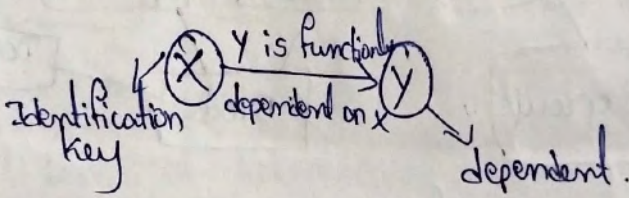 Y is functionly
X
Y
dependend on x
Identification
Key
dependent.